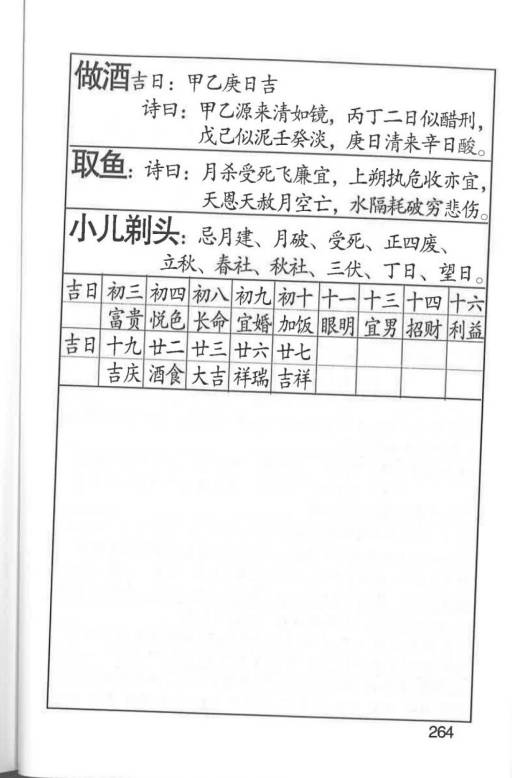 做酒吉日：甲乙庚日吉
诗曰：甲乙源来清如镜，丙丁二日似醋刑，
戊己似泥壬癸淡，庚日清来辛日酸。
取鱼：诗曰：月杀受死飞廉宜，上朔执危收亦宜，
天恩天赦月空亡，水隔耗破穷悲伤。
小儿剃头：忌月建、月破、受死、正四废、
立秋、春社、秋社、三伏、丁日、望日。
吉日 初三 初四 初八 初九 初十 十一 十三 十四 十六
富贵 悦色 长命 宜婚 加饭 眼明 宜男 招财 利益
吉日 十九 廿二 廿三 廿六 廿七
吉庆 酒食 大吉 祥瑞 吉祥
264